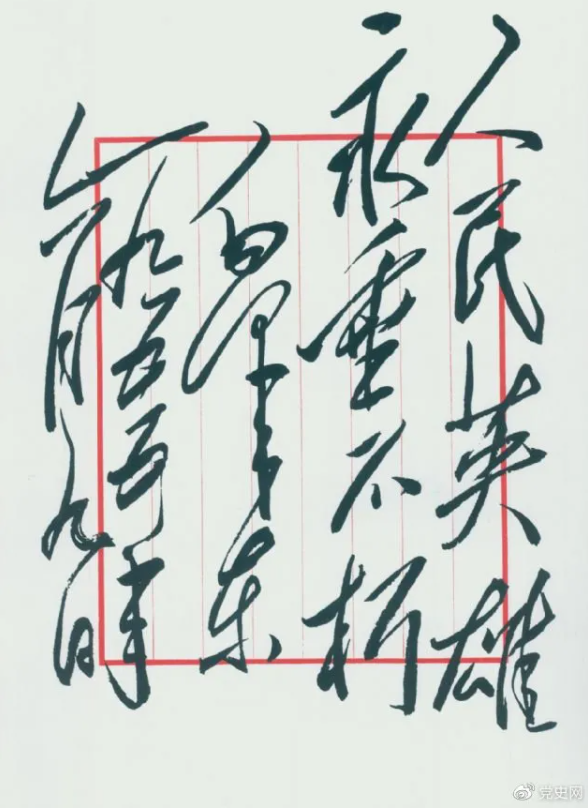 人民英雄
永垂不朽
毛泽东
一九五五年
六月九日
党史网